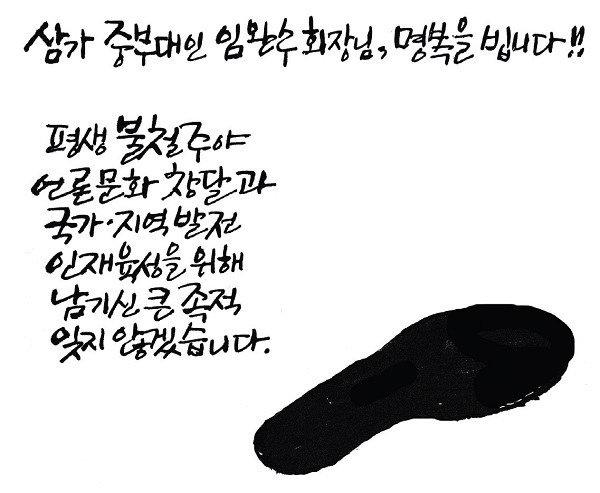 삼가 중부대인 임완수 회장님, 명복을 빕니다!!
평생 불철주야
언론문화 창달과
국가·지역발전
인재육성을 위해
남기신 큰 족적
잊지 않겠습니다.